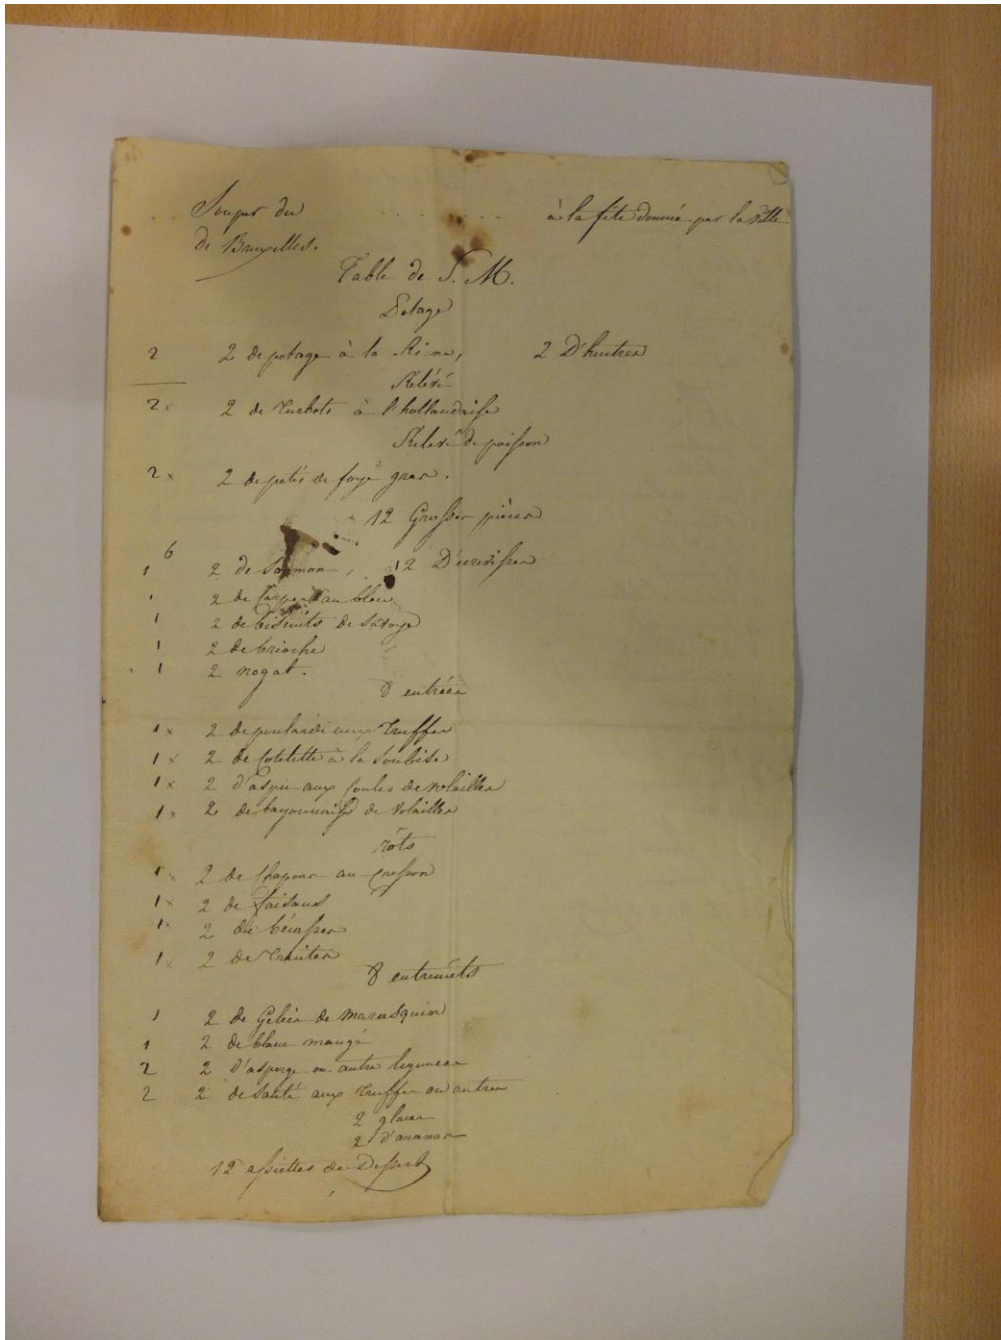 Souper du . . . . . . . . à la fête donnée par la Ville
de Bruxelles.
Table de S. M.
Potage
2 2 de potage à la Reine, 2 D'huitres
Rélévé
2 x 2 de Turbots à l'hollandaisse
Relevé de poisson
2 x 2 de patés de foye gras.
12 Grosses pièces
6
1 2 de Saumon, 12 D'ecrevisses
1 2 de Carpes au bleu
1 2 de biscuits de Savoye
1 2 de brioche
1 2 nogat.
8 entrées
1 x 2 de poularde aux Truffes
1 x 2 de Cotelette à la Soubise
1 x 2 d'aspic aux de volailles
1 x 2 de bayonnaisse de Volailles
rôts
1 x 2 de Chapons au Cresson
1 x 2 de faisans
1 x 2 de bécasses
1 x 2 de Truites
8 entremêts
1 2 de Gelée de marasquin
1 2 de blanc mangé
2 2 d'asperge ou autre legumes
2 2 de Sauté aux Truffes ou autres
2 glaces
2 d'ananas
12 assiettes de Dessert